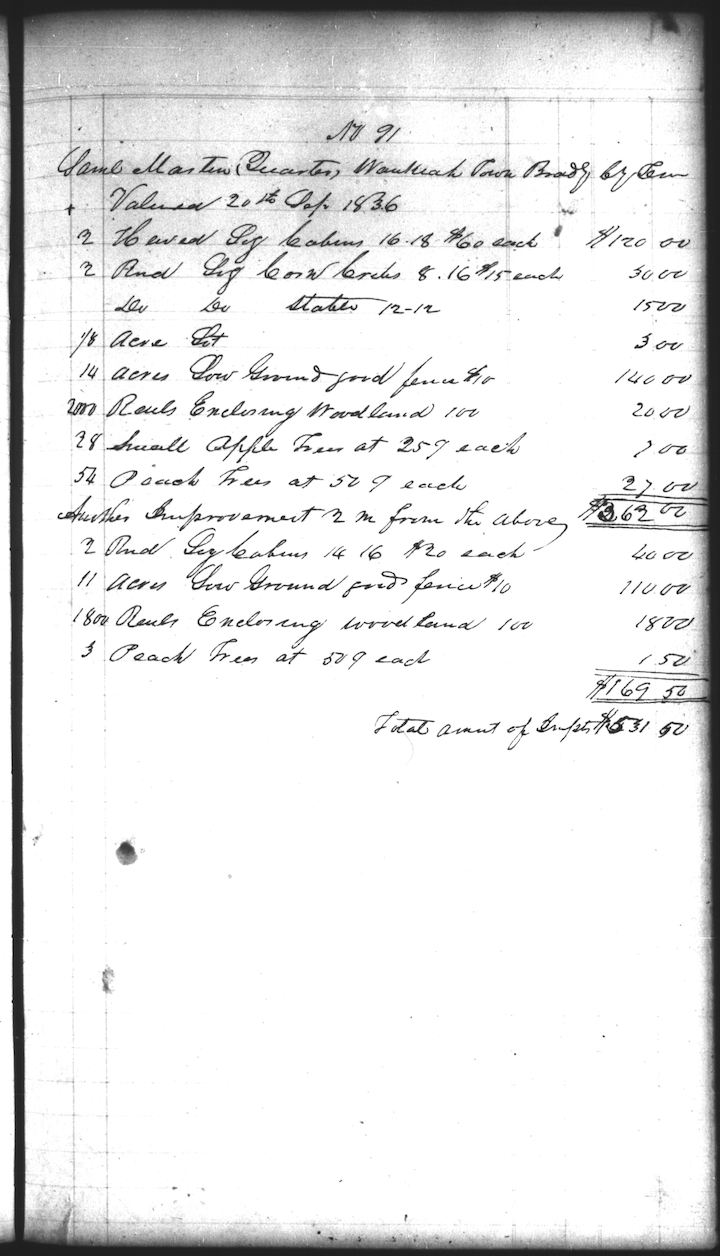 No 91
Saml Martin (Quarter) Waukiah Town Bradly Cy Ten
Valued 20th Sep 1836
2 Hewed Log Cabins 16-18 $60 each $120 00
2 Rnd Log Corn Cribs 8.16 $15 each 30 00
Do Do Stable 12-12 15 00
1/8 Acre Lot 3 00
14 Acres Low Ground good fence $10 140 00
2000 Rails Enclosing Woodland 100 20 00
28 Small Apple Trees at 25 ¢ each 7 00
54 Peach Trees at 50 ¢ each 27 00
Another Improvement 2 m from the above $362 00
2 Rnd Log Cabins 14 16 $20 each 40 00
11 Acres Low Ground good fence $10 110 00
1800 Rails Enclosing woodland 100 18 00
3 Peach Trees at 50 ¢ each 1 50
$169 50
Total amut of Impts $531 50